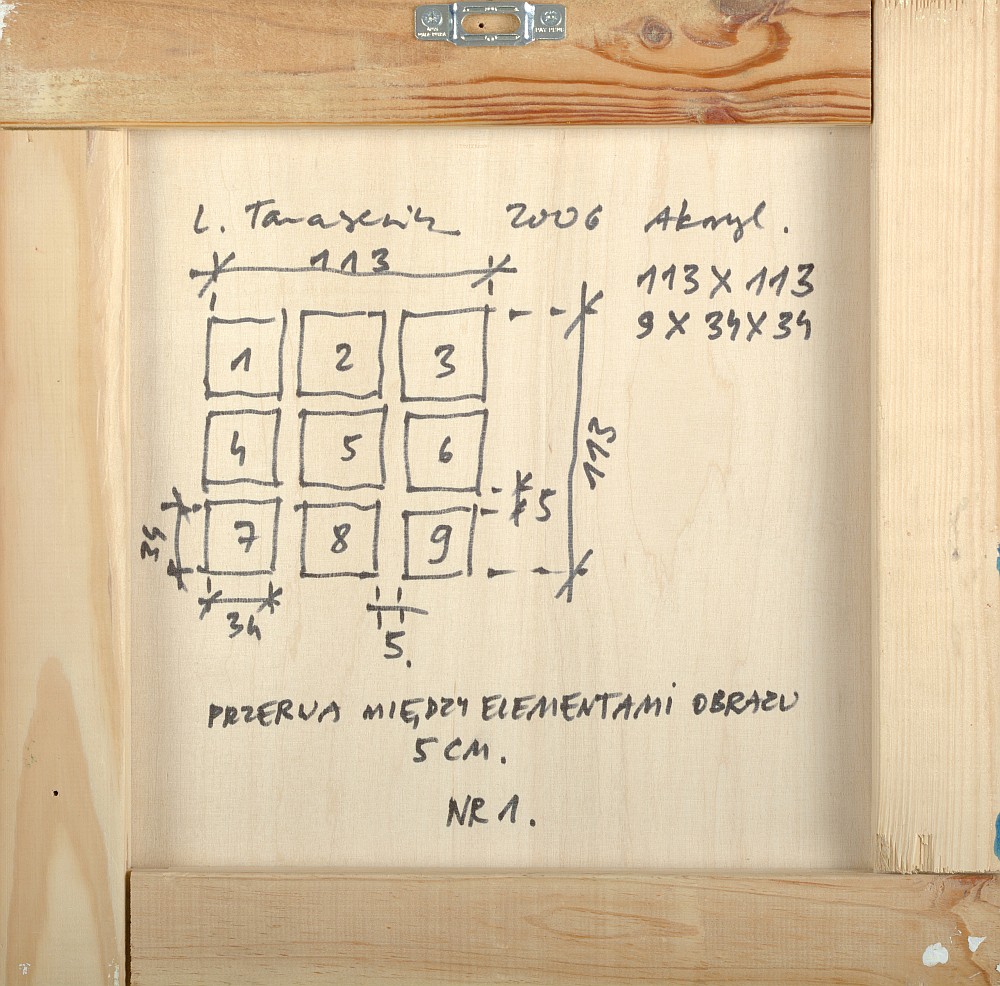 L. Tarasewicz 2006 Akryl.
113
113 X 113
9 X 34 X 34
1 2 3
113
4 5 6
5
34
7 8 9
34
5.
PRZERWA MIĘDZY ELEMENTAMI OBRAZU
5 CM.
NR 1.